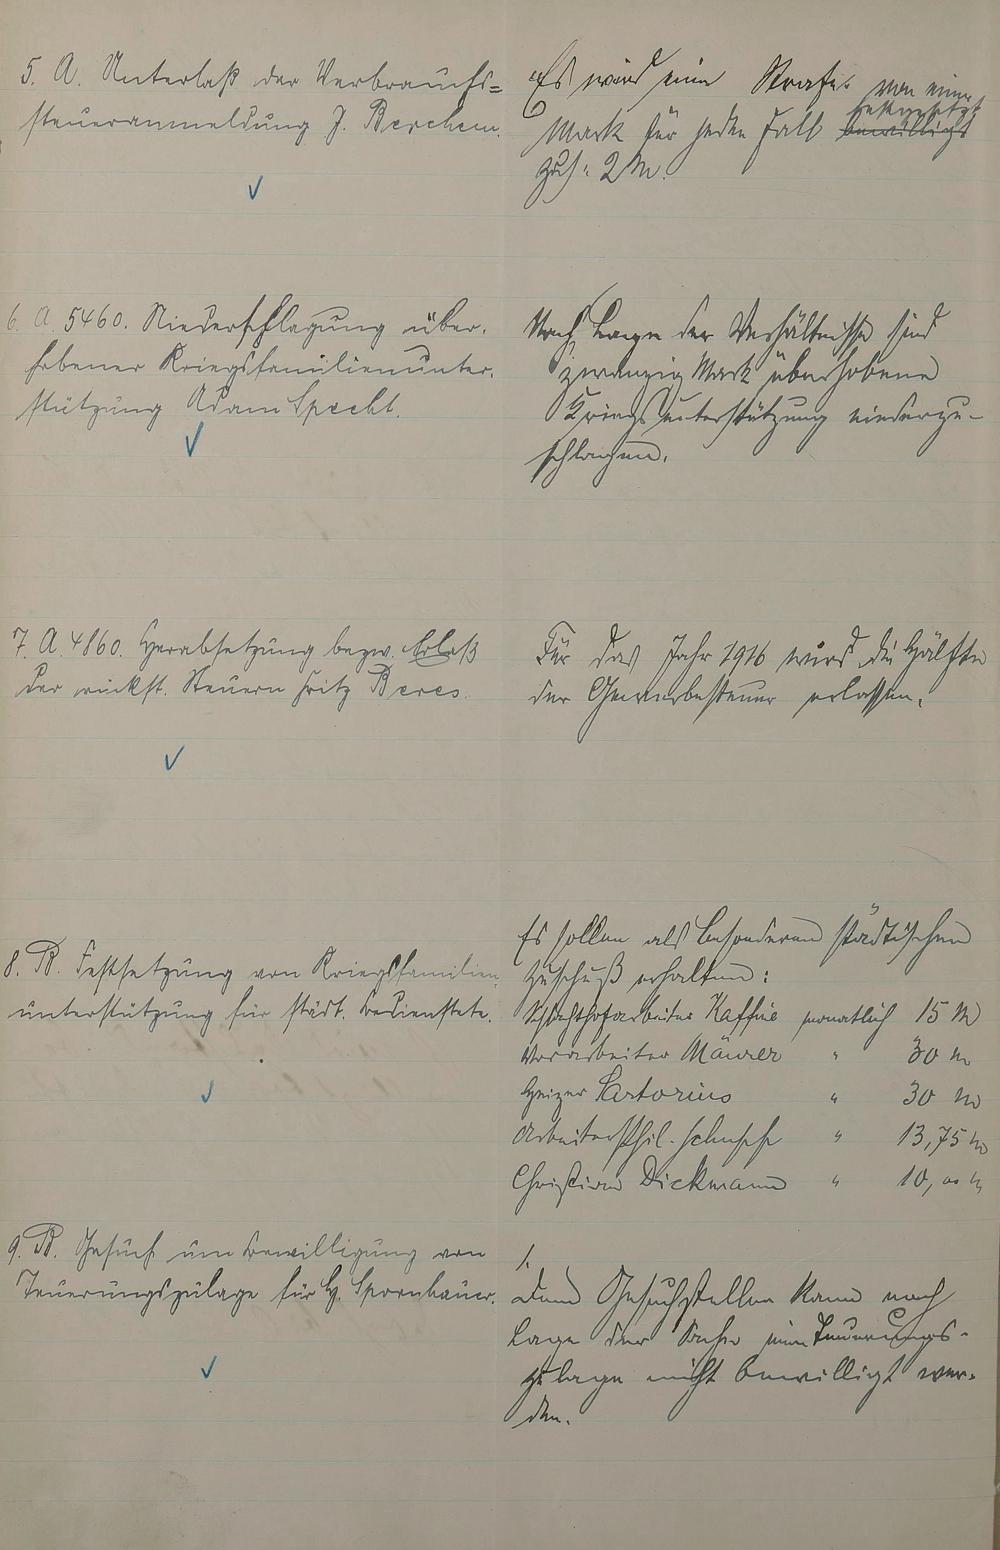 5. A. Unterlaß der Verbrauchs=
steueranmeldung J. Berchem.
Es wird eine Strafe von einer
festgesetzt
Mark für jeden Fall bewilligt
zus: 2 M.
6. A. 5460. Niederschlagung über-
hobener Kriegsfamilienunter-
stützung Adam Specht.
Nach Lage der Verhältnisse sind
zwanzig Mark überhobene
Kriegsunterstützung niederzu-
schlagen.
7. A. 4860. Herabsetzung bezw. Erlaß
der rückst. Steuern Fritz Beres.
Für das Jahr 1916 wird die Hälfte
der Gewerbesteuer erlassen.
8. B. Festsetzung von Kriegsfamilien
unterstützung für städt. Bedienstete.
Es sollen als besonderen städtischen
Zuschuß erhalten:
Schlachthofarbeiter Kaffine monatlich 15 M
Vorarbeiter Mäurer " 30 M
Heizer Sartorius " 30 M
Arbeiter Phil. " 13,75 M
Christian Dickmann " 10,00 M
9. B. Gesuch um Bewilligung von
Teuerungszulage für H. Spornhauer.
1.
Dem Gesuchsteller kann nach
Lage der Sache eine Teuerungs-
zulage nicht bewilligt wer-
den.